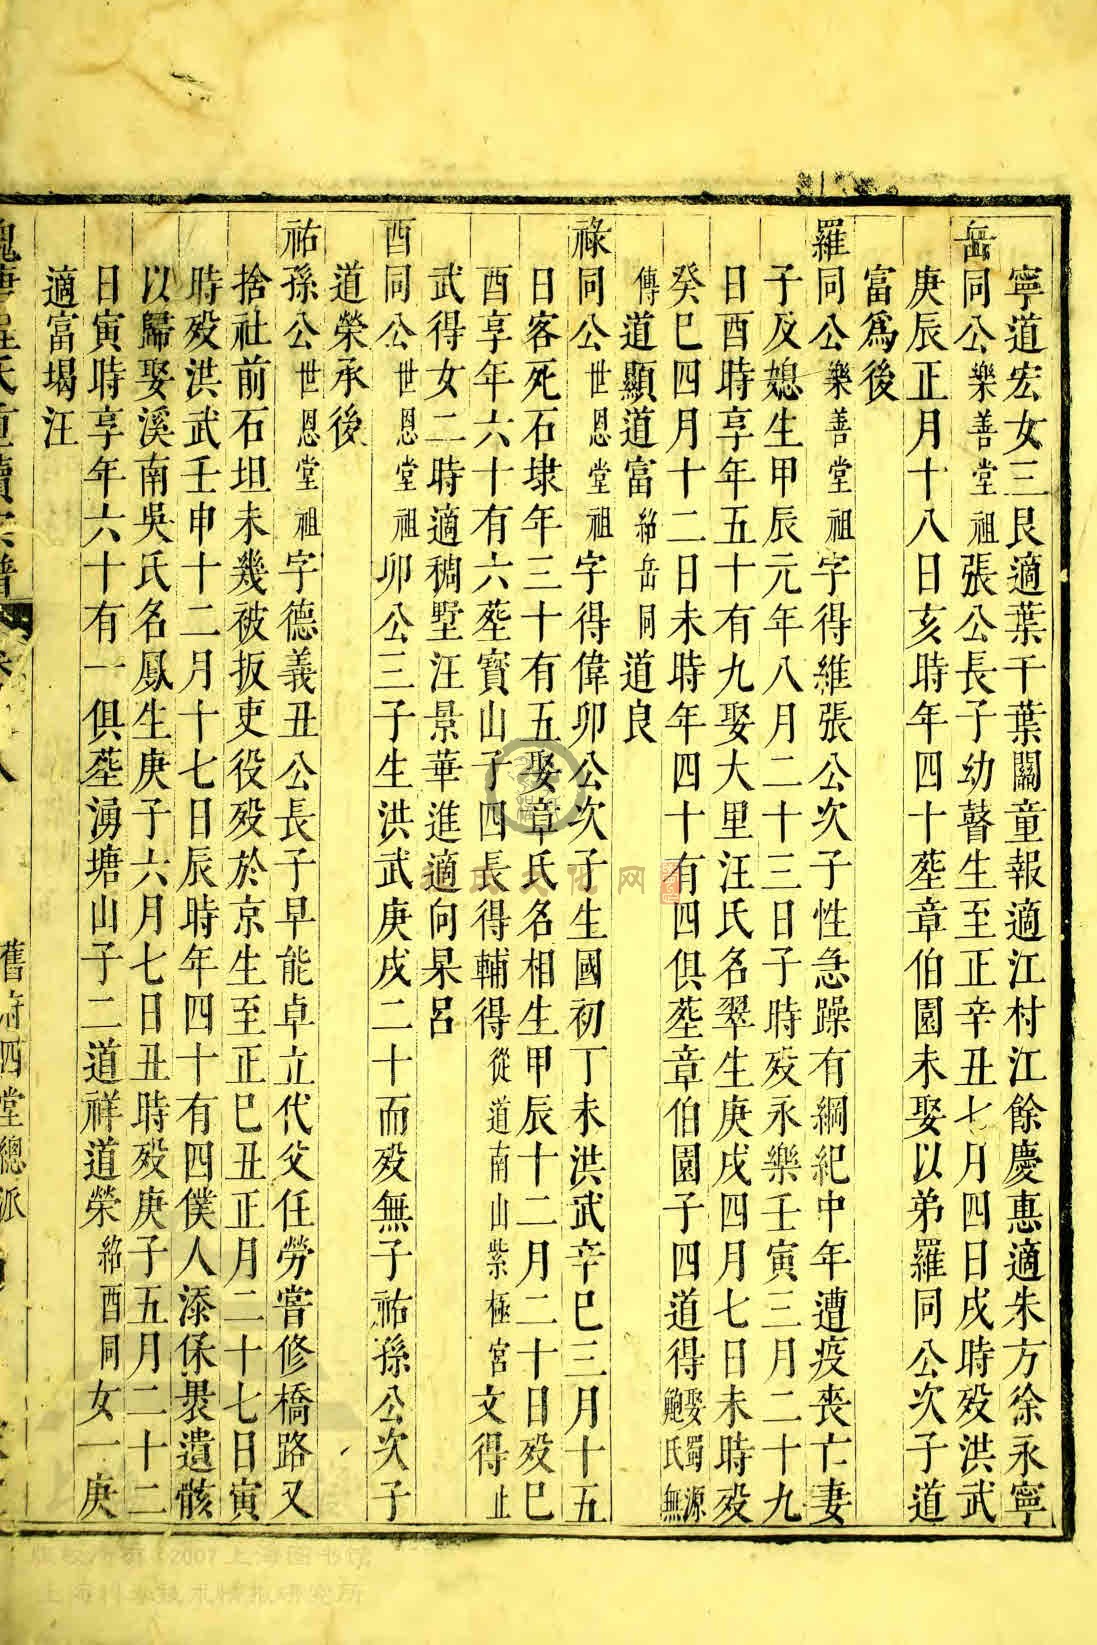 寧道宏女三艮適葉干葉關童報適江村江餘慶惠適朱方徐永寧
岳同公樂善堂祖張公長子幼瞽生至正辛丑七月四日戌時歿洪武
庚辰正月十八日亥時年四十塟章伯園未娶以弟羅同公次子道
富爲後
羅同公樂善堂祖字得維張公次子性急躁有綱紀中年遭疫喪亡妻
子及媳生甲辰元年八月二十三日子時歿永樂壬寅三月二十九
日酉時享年五十有九娶大里汪氏名翠生庚戌四月七日未時歿
癸巳四月十二日未時年四十有四俱塟章伯園子四道得娶蜀源鮑氏無
傳道顯道富紹岳同道良
祿同公世恩堂祖字得偉卯公次子生國初丁未洪武辛巳三月十五
日客死石埭年三十有五娶章氏名相生甲辰十二月二十日歿巳
酉享年六十有六塟寶山子四長得輔得從道南山紫極宮文得止
武得女二時適稠墅汪景華進適向杲呂
酉同公世恩堂祖卯公三子生洪武庚戌二十而歿無子祐孫公次子
道榮承後
祐孫公世恩堂祖字德義丑公長子早能卓立代父任勞嘗修橋路又
捨社前石坦未幾被扳吏役歿於京生至正巳丑正月二十七日寅
時歿洪武壬申十二月十七日辰時年四十有四僕人添保褁遺骸
以歸娶溪南吳氏名鳳生庚子六月七日丑時歿庚子五月二十二
日寅時享年六十有一俱塟湧塘山子二道祥道榮紹酉同女一庚
適富堨汪
舊府四堂總派
版权所有 2007 上海图书馆
上海科学技术情报研究所